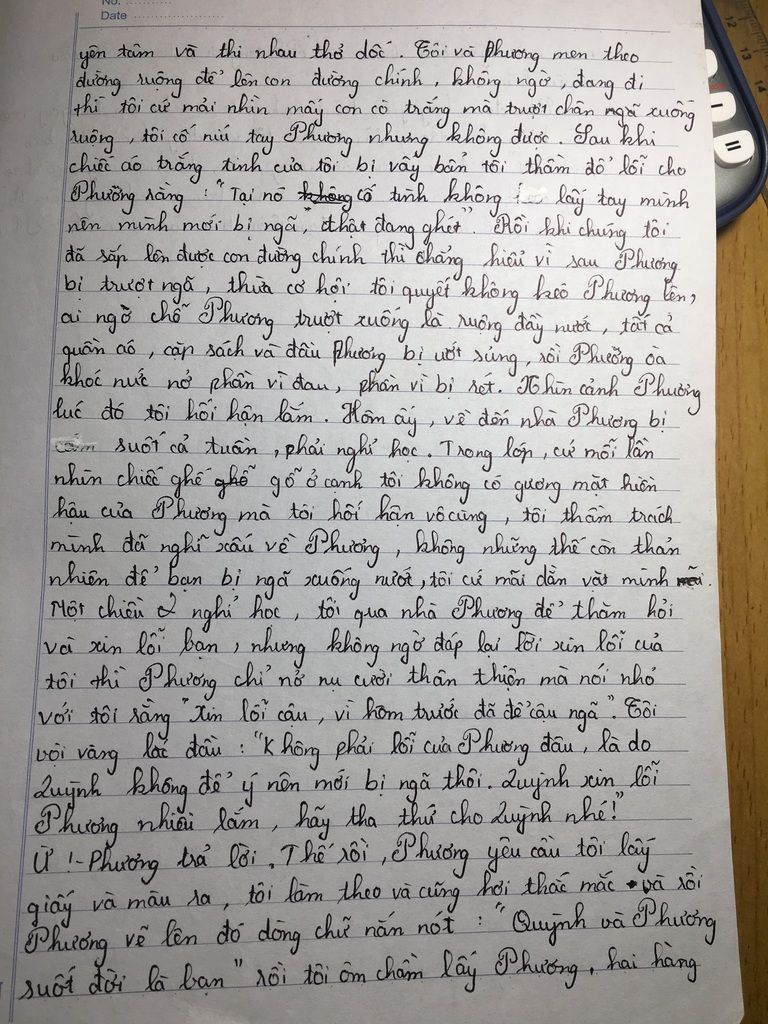 No. ............
Date ........................
yên tâm và thi nhau thở dốc. Tôi và Phương men theo
đường ruộng để lên con đường chính, không ngờ, đang đi
thì tôi cứ mải nhìn mấy con cò trắng mà trượt chân ngã xuống
ruộng, tôi cố níu tay Phương nhưng không được. Sau khi
chiếc áo trắng tinh của tôi bị vấy bẩn tôi thầm đổ lỗi cho
Phưỡng rằng: "Tại nó không cố tình không lấy tay mình
nên mình mới bị ngã, "thật đang ghét". Rồi khi chúng tôi
đã sắp lên được con đường chính thì chẳng hiểu vì sau Phương
bị trượt ngã, thừa cơ hội tôi quyết không kéo Phương lên,
ai ngờ chỗ Phương trượt xuống là ruộng đầy nước, tất cả
quần áo, cặp sách và đầu Phương bị ướt sủng, rồi Phưỡng oà
khoc nưc nở phần vì đau, phần vì bị rét. Nhìn cảnh Phương
luc đó tôi hối hận lắm. Hôm ấy, về đến nhà Phương bị
suốt cả tuần, phải nghỉ học. Trong lớp, cứ mỗi lần
nhìn chiếc ghế ghỗ gỗ ở cạnh tôi không có gương mặt hiền
hậu của Phương mà tôi hối hận vô cùng, tôi thầm trach
mình đã nghĩ xấu về Phương, không những thế còn thản
nhiên để bạn bị ngã xuống nước, tôi cứ mãi dằn vặt mình.
Một chiều nghỉ học, tôi qua nhà Phương để thăm hỏi
và xin lỗi bạn, nhưng không ngờ đáp lại lời xin lỗi của
tôi thì Phương chỉ nở nụ cười thân thiện mà nói nhỏ
với tôi rằng "Xin lỗi cậu, vì hôm trước đã để cậu ngã". Tôi
vội vàng lắc đầu: "Không phải lỗi của Phương đâu, là do
Quỳnh không để ý nên mới bị ngã thôi. Quỳnh xin lỗi
Phương nhiều lắm, hãy tha thứ cho Quỳnh nhé!"
Ừ!- Phương trả lời. Thế rồi, Phương yêu cầu tôi lấy
giấy và màu ra, tôi làm theo và cũng hơi thắc mắc và rồi
Phương vẽ lên đó dòng chữ nắn nót: "Quỳnh và Phương
suốt đời là bạn" rồi tôi ôm chầm lấy Phương, hai hàng
12
13
14